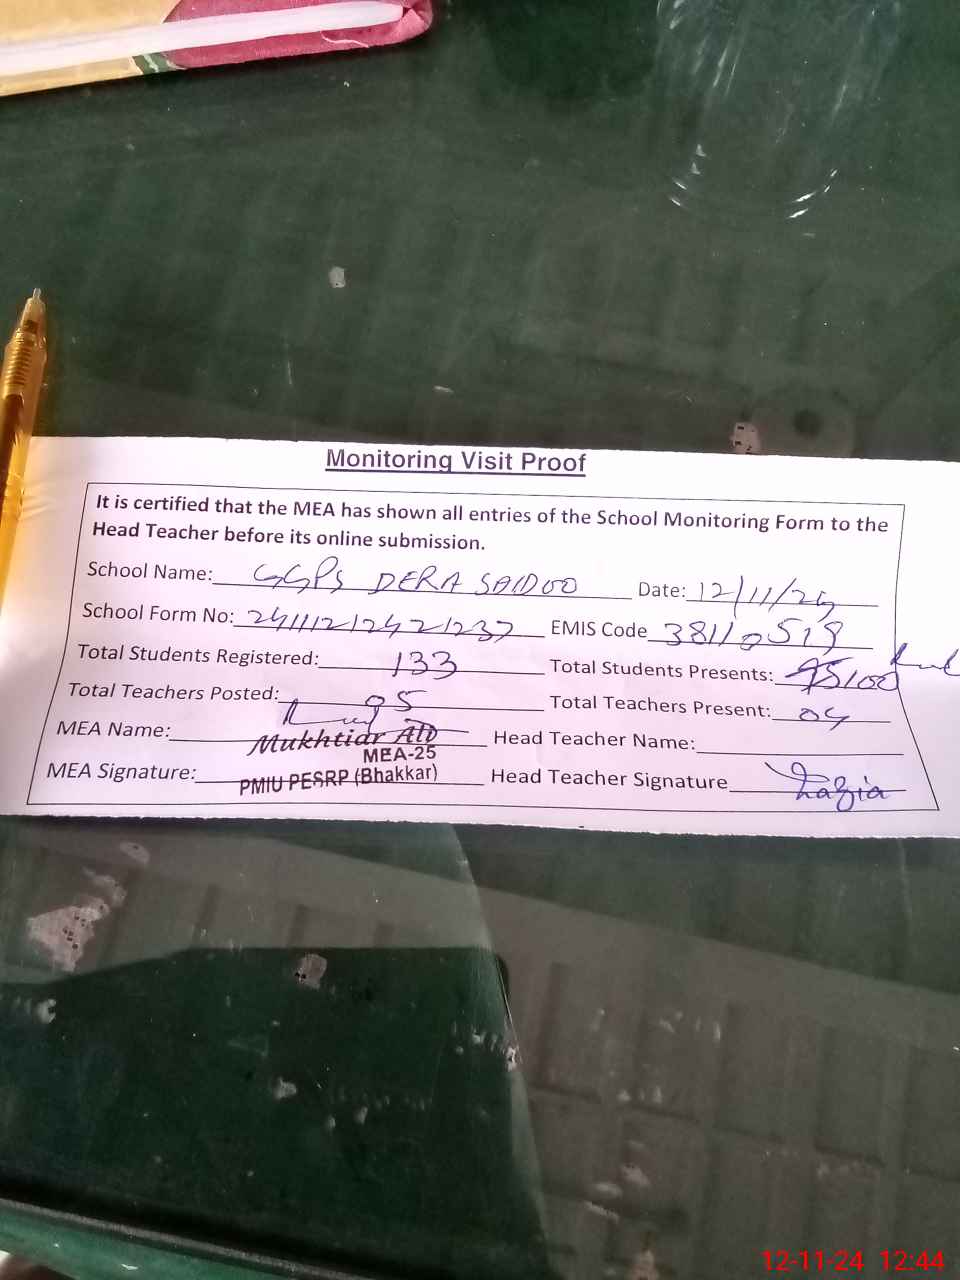 Monitoring Visit Proof
It is certified that the MEA has shown all entries of the School Monitoring Form to the
Head Teacher before its online submission.
School Name: GGPS DERA SAIDOO Date: 12/11/24
School Form No: 241112124421237 EMIS Code 38110519
Total Students Registered: 133 Total Students Presents: 95 100
Total Teachers Posted: 05 Total Teachers Present: 04
MEA Name: Mukhtiar Head Teacher Name:
MEA-25
MEA Signature: PMIU PESRP (Bhakkar) Head Teacher Signature Nazia
12-11-24 12:44